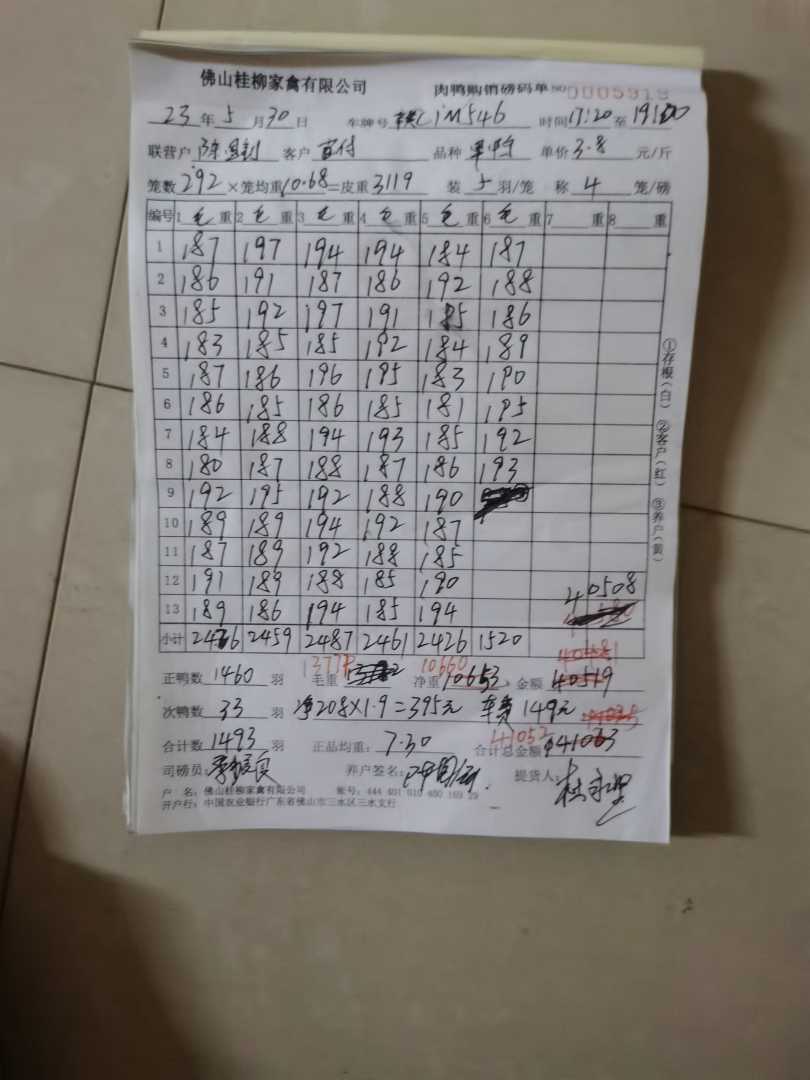 佛山桂柳家禽有限公司 肉鸭购销磅码单 NO 0005919
23年5月30日 车牌号 C1M546 时间17:20至19:00
联营户 客户 品种 单价3.8元/斤
笼数292×笼均重10.68=皮重3119 装5羽/笼 称4笼/磅
编号 1毛重 2毛重 3毛重 4毛重 5毛重 6毛重 7重 8重
1 187 197 194 194 184 187
2 186 191 187 186 192 188
3 185 192 197 191 185 186
4 183 185 185 192 184 189
5 187 186 196 195 183 190
6 186 185 186 185 181 195
7 184 188 194 193 185 192
8 180 187 188 187 186 193
9 192 195 192 188 190
10 189 189 194 192 187
11 187 189 192 188 185
12 191 189 188 185 190 40508
13 189 186 194 185 194
小计 2426 2459 2487 2461 2426 1520
正鸭数1460羽 毛重 净重10660 10653 金额40519
次鸭数33羽 净208×1.9=395元 车费149元
41052
合计数1493羽 正品均重:7.30 合计总金额
司磅员: 养户签名: 提货人:
户 名:佛山桂柳家禽有限公司 账号:
开户行:中国农业银行广东省佛山市三水区三水支行
①存根(白) ②客户(红) ③养户(黄)